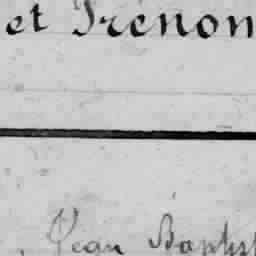 et Prénon
Jean Baptist